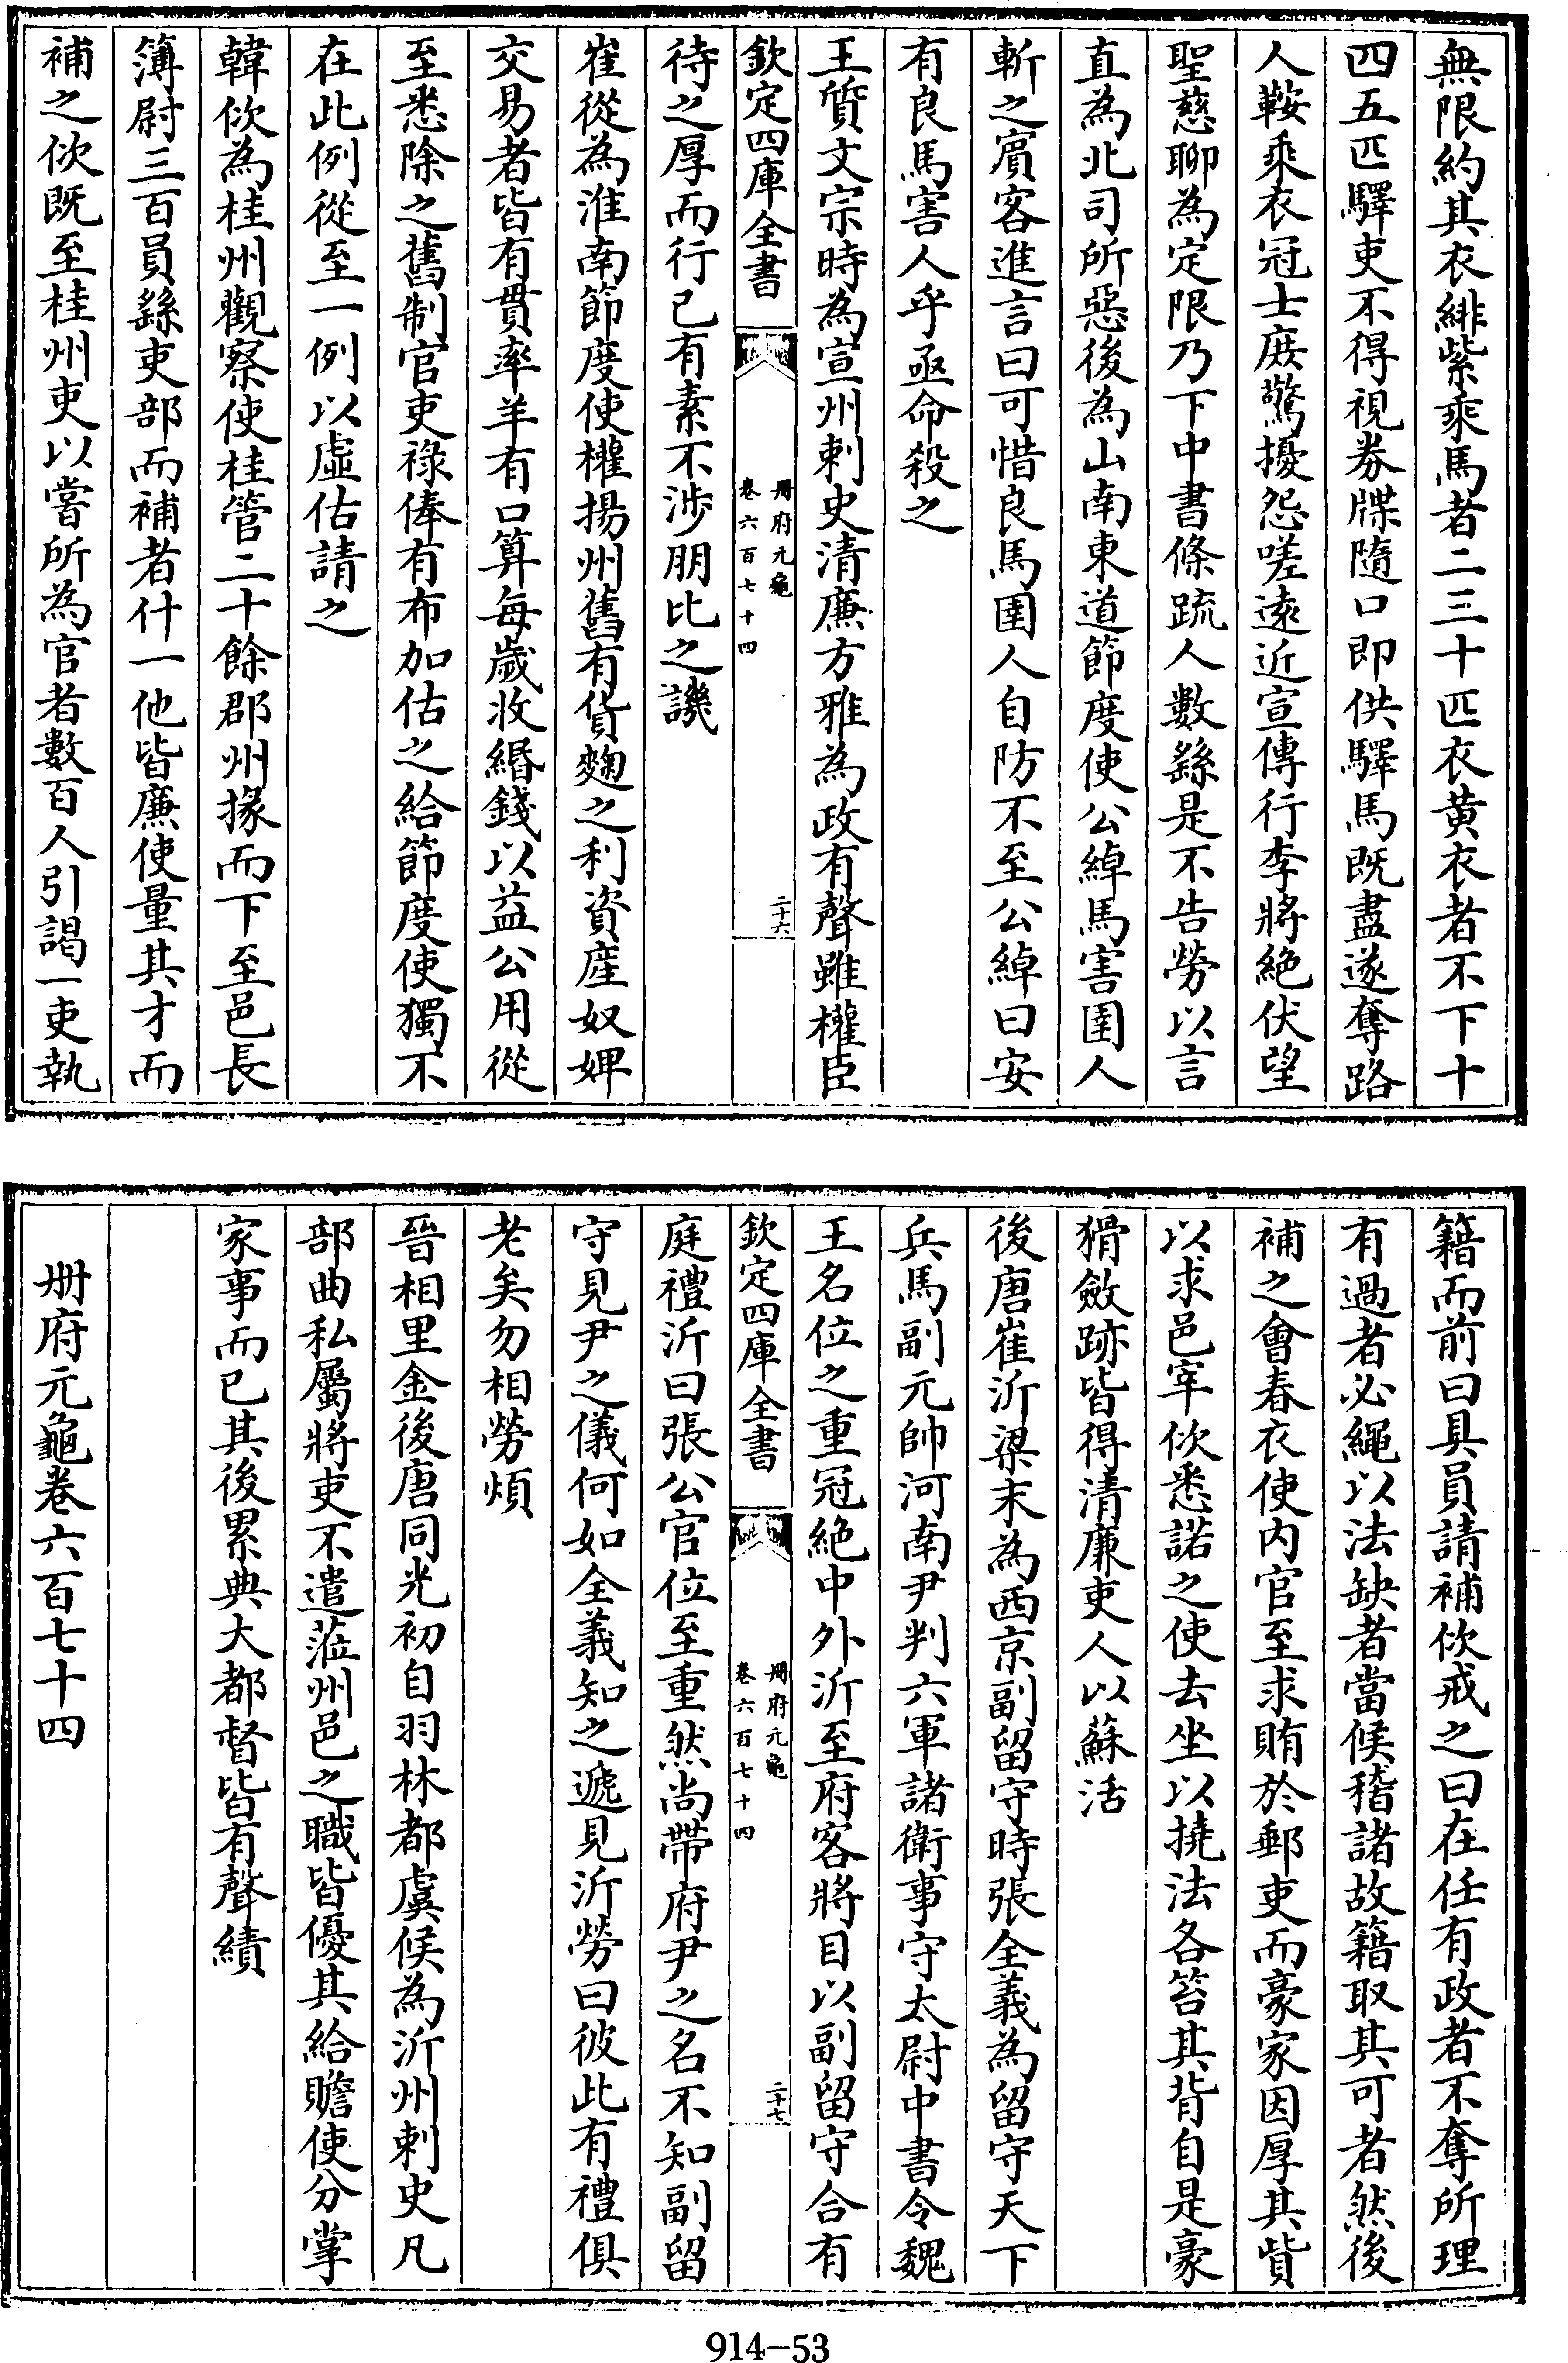 無限約其衣緋紫乘馬者二三十匹衣黄衣者不下十
四五匹驛吏不得視券牒隨口即供驛馬既盡遂奪路
人鞍乘衣冠士庶驚擾怨嗟遠近宣傳行李將絶伏望
聖慈聊為定限乃下中書條疏人數繇是不告勞以言
直為北司所惡後為山南東道節度使公綽馬害圉人
斬之賔客進言曰可惜良馬圉人自防不至公綽曰安
有良馬害人乎亟命殺之
王質文宗時為宣州刺史清廉方雅為政有聲雖權臣
欽定四庫全書
冊府元龜
卷六百七十四
二十六
待之厚而行已有素不涉朋比之譏
崔從為淮南節度使權揚州舊有貨麴之利資産奴婢
交易者皆有貫率羊有口算每歲收緡錢以益公用從
至悉除之舊制官吏祿俸有布加估之給節度使獨不
在此例從至一例以虛估請之
韓佽為桂州觀察使桂管二十餘郡州掾而下至邑長
簿尉三百員繇吏部而補者什一他皆廉使量其才而
補之佽既至桂州吏以嘗所為官者數百人引謁一吏執
籍而前曰具員請補佽戒之曰在任有政者不奪所理
有過者必繩以法缺者當候稽諸故籍取其可者然後
補之會春衣使内官至求賄於郵吏而豪家因厚其貲
以求邑宰佽悉諾之使去坐以撓法各笞其背自是豪
猾斂跡皆得清廉吏人以蘇活
後唐崔沂梁末為西京副留守時張全義為留守天下
兵馬副元帥河南尹判六軍諸衛事守太尉中書令魏
王名位之重冠絶中外沂至府客將目以副留守合有
欽定四庫全書
冊府元龜
卷六百七十四
二十七
庭禮沂曰張公官位至重然尚帶府尹之名不知副留
守見尹之儀何如全義知之遽見沂勞曰彼此有禮俱
老矣勿相勞煩
晉相里金後唐同光初自羽林都虞候為沂州刺史凡
部曲私屬將吏不遣蒞州邑之職皆優其給贍使分掌
家事而已其後累典大都督皆有聲績
冊府元龜卷六百七十四
914-53